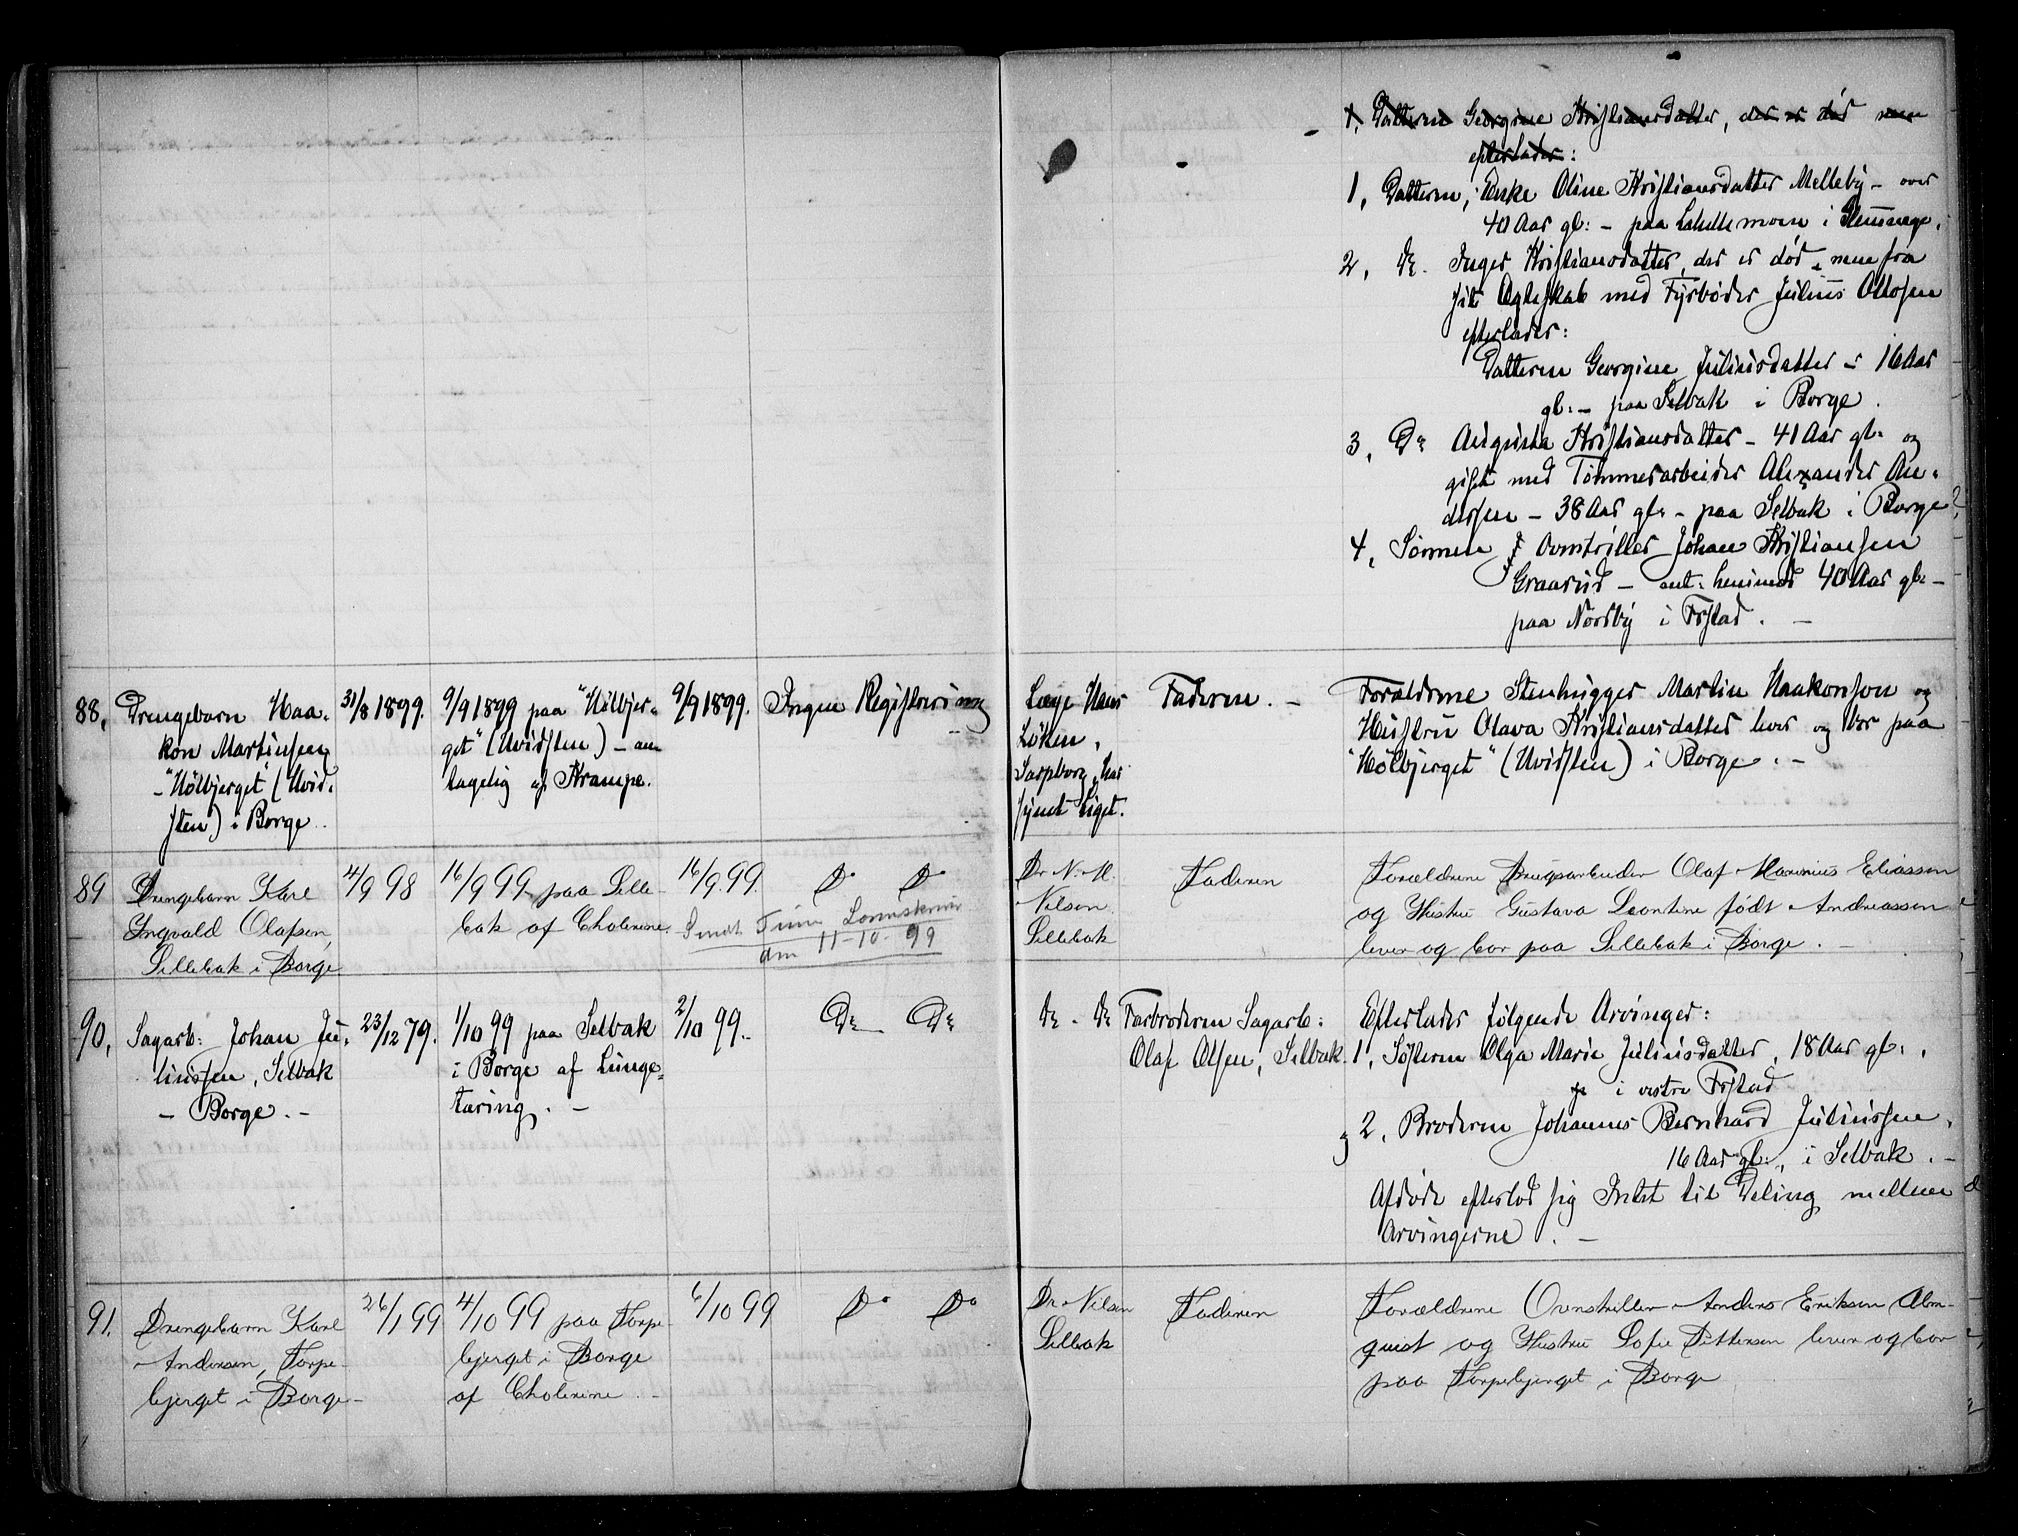 1, Datteren Georgine Kristiansdatter, der er död men
efterlader:
1, Datteren, Enke Oline Kristiansdatter Melleby - over
40 Aar gl: - paa Labellemoen i Glemminge.
2, do. Inger Kristiansdatter, der er död - men fra
sit Ægteskab med Fyrböder Julius Ottosen
efterlader:
Datteren Georgine Juliusdatter - 16 Aar
gl: - paa Selbak i Borge.
3, Do Augusta Kristiansdatter - 41 Aar gl: og
gift med Tömmerarbeider Alexander An-
dersen - 38 Aar gl: - paa Selbak i Borge
4, Sönnen Ovnstriller Johan Kristiansen
Graarud - ant: henimod 40 Aar gl: -
paa Nordby i Frstad. -
88, Drengebarn Haa-
kon Martinsen
- "Hölbjerget" (Hvid-
sten) i Borge.
31/8 1899.
9/9 1899 paa "Hölbjer-
get" (Hvidsten) - an-
tagelig af Krampe.
9/9 1899.
Ingen Registrering
Læge Hans
Löken,
Sarpborg, har
synet Liget.
Faderen. -
Forældrene Stenhugger Martin Haakonson og
Hustru Olava Kristiansdatter lever og bor paa
"Hölbjerget" (Hvidsten) i Borge. -
89 Drengebarn Karl
Ingvald Olafsen,
Sellebak i Borge
4/9 98
16/9 99 paa Selle-
bak af Cholerine.
16/9. 99.
Do Do
Sendt Tune Lensmand
den 11-10-99
Dr N. M.
Nilsen
Sellebak
Faderen
Forældrene Brugsarbeider Olaf Marinius Eliassen
og Hustru Gustava Leontine födt Andreassen
lever og bor paa Sellebak i Borge. -
90, Sagarb: Johan Ju-
liussen, Selbak
- Borge. -
23/12 79.
1/10 99 paa Selbak
i Borge af Lunge-
tæring. -
2/10 99.
Do Do
do - do
Farbroderen Sagarb:
Olaf Olsen, Selbak.
Efterlader fölgende Arvinger:
1, Sösteren Olga Marie Juliusdatter, 18 Aar gl:,
i vestre Frstad
2, Broderen Johannes Bernhard Juliussen,
16 Aar gl:, i Selbak. -
Afdöde efterlod sig Intet til Deling mellem
Arvingerne. -
91. Drengebarn Karl
Andersen, Torpe-
bjerget i Borge-
26/1 99
4/10 99 paa Torpe-
bjerget i Borge
af Cholerine.
6/10 99
Do Do
Dr Nilsen
Sellebak
Faderen
Forældrene Ovnstriller Anders Eriksen Alm-
quist og Hustru Sofie Pettersen lever og bor
paa Torpebjerget i Borge